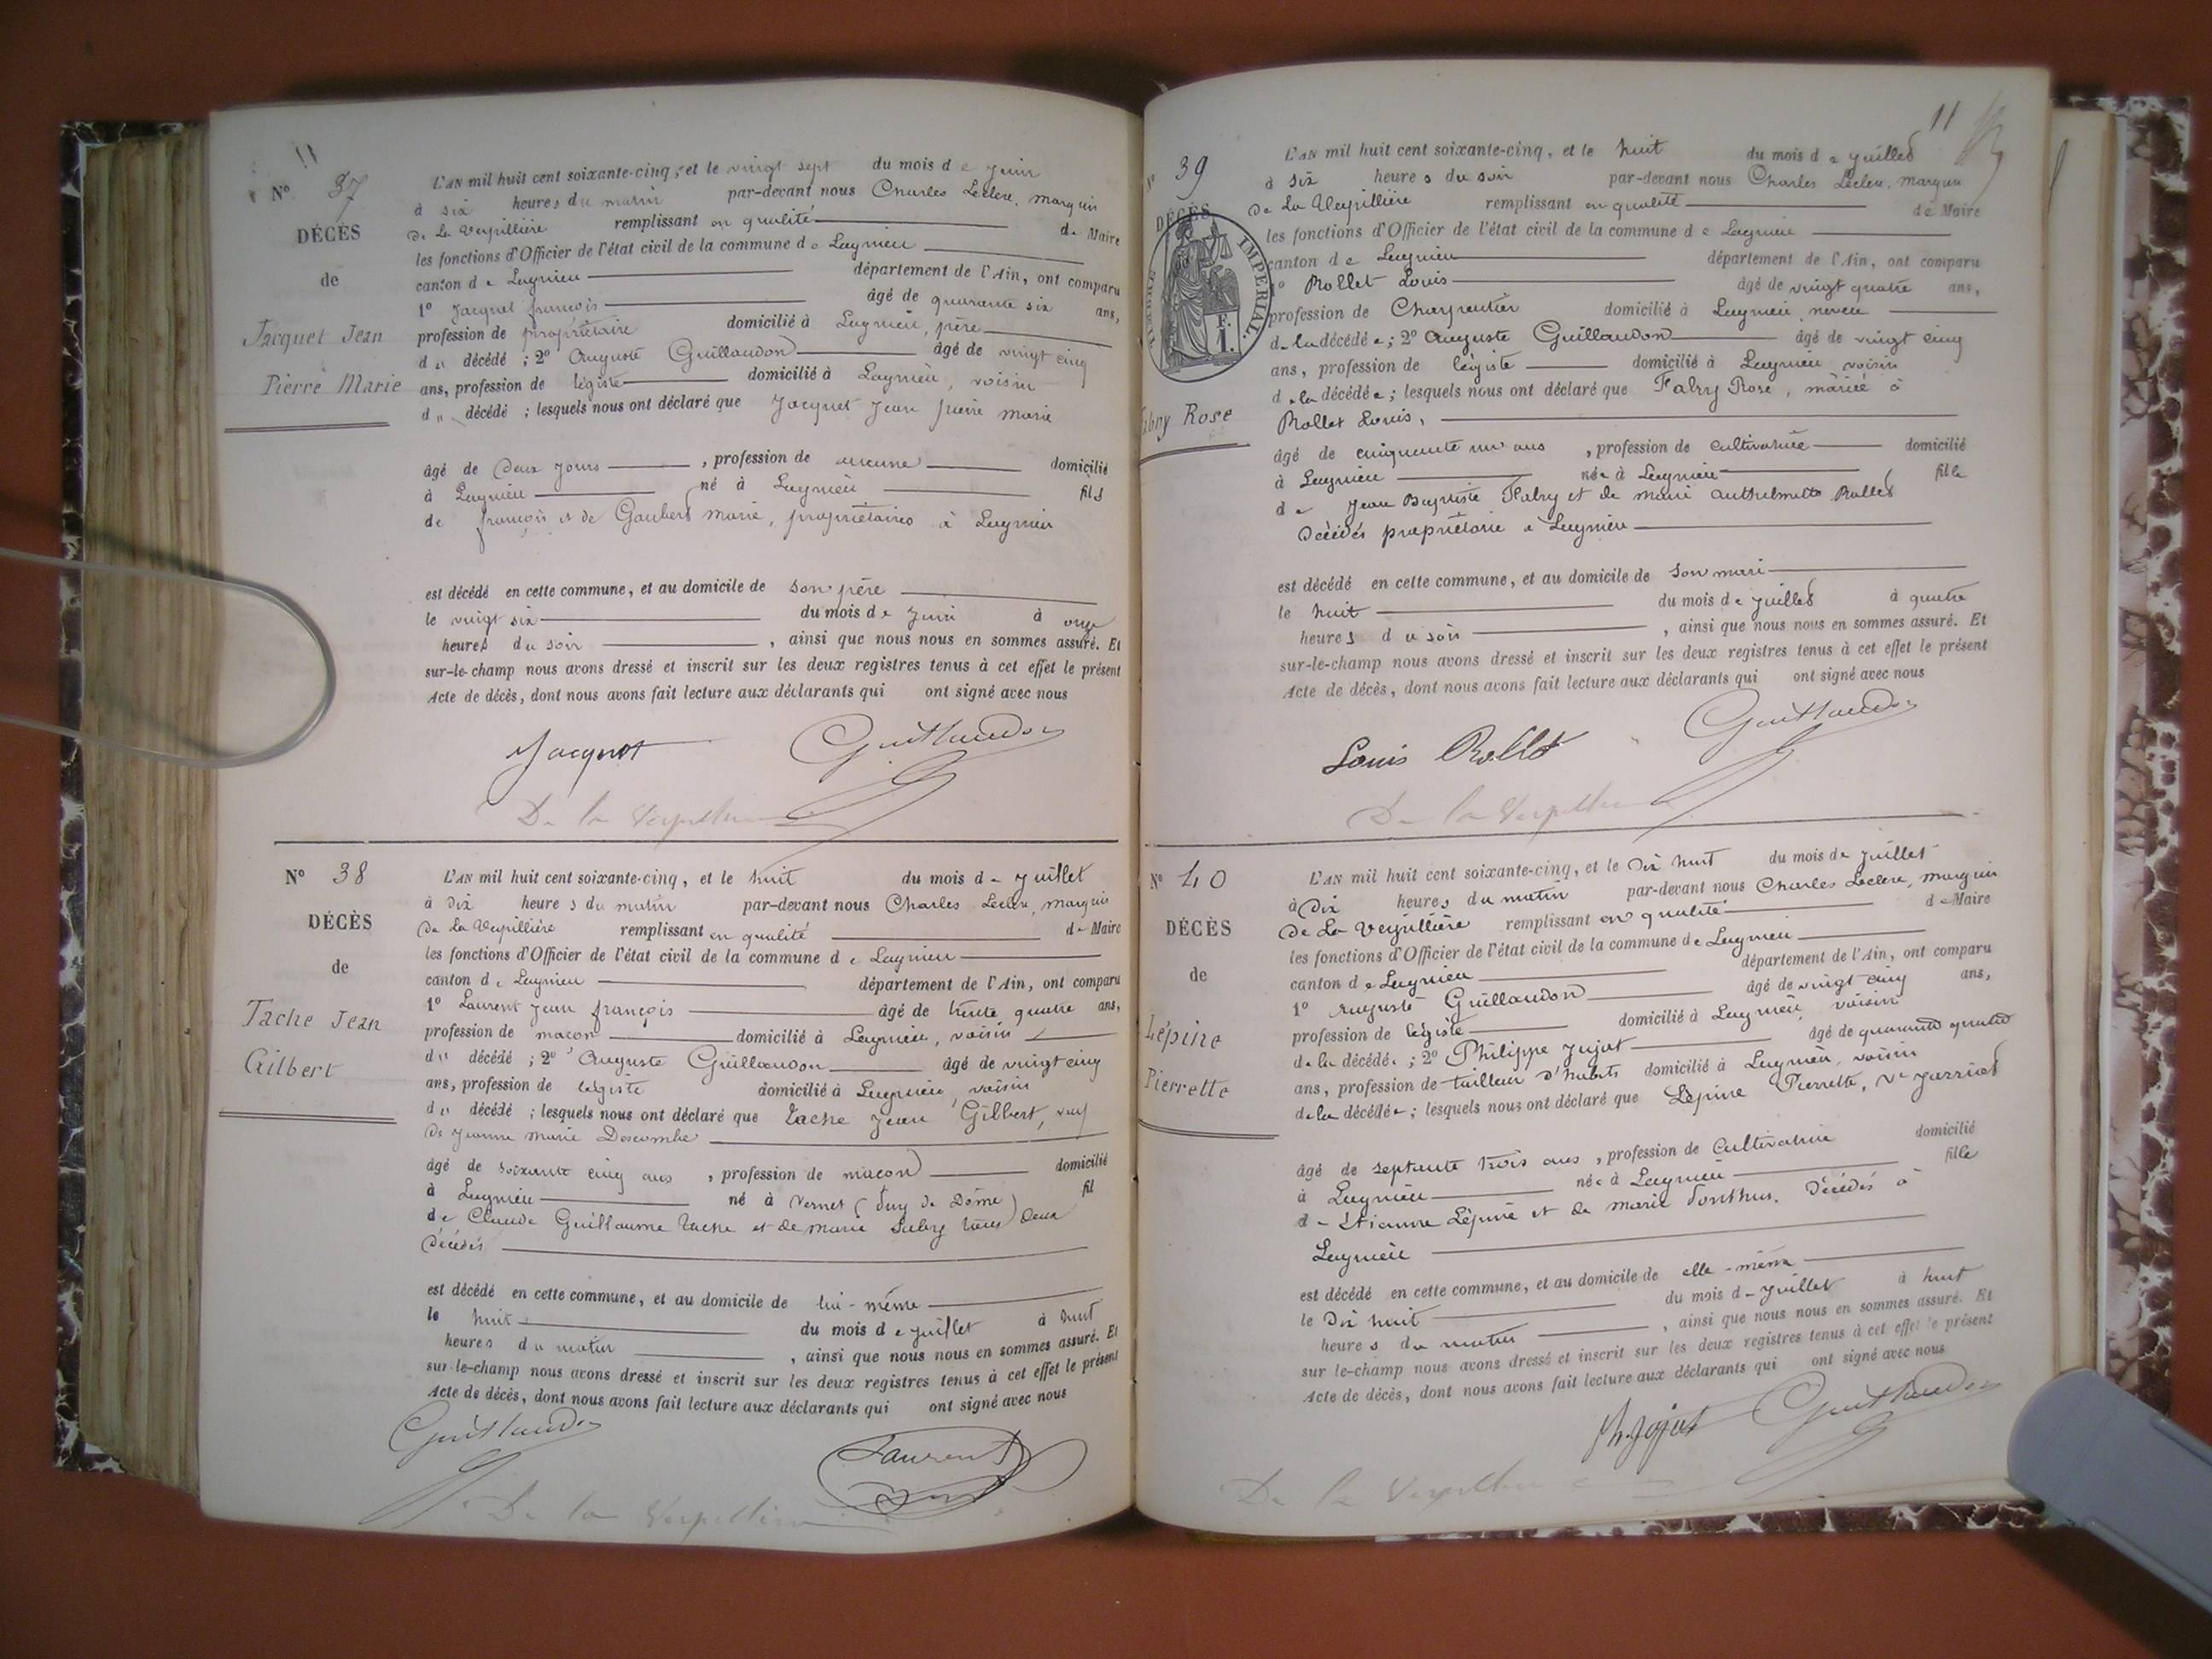 11
N° 37
DÉCÈS
de
Jacquet Jean
Pierre Marie
L'AN mil huit cent soixante-cinq, et le vingt sept du mois de juin
à six heures du matin par-devant nous Charles Leclerc, marquis
De La Verpillière remplissant en qualité de Maire
les fonctions d'Officier de l'état civil de la commune de Lagnieu
canton de Lagnieu département de l'Ain, ont comparu
1° Jacquet françois âgé de quarante six ans,
profession de propriétaire domicilié à Lagnieu, père
du décédé ; 2° Auguste Guillaudon âgé de vingt cinq
ans, profession de légiste domicilié à Lagnieu, voisin
du décédé ; lesquels nous ont déclaré que Jacquet Jean pierre marie
âgé de Deux jours , profession de aucune domicilié
à Lagnieu né à Lagnieu fils
de françois et de Gaubert marie, propriétaires à Lagnieu
est décédé en cette commune, et au domicile de son père
le vingt six du mois de juin à onze
heures du soir , ainsi que nous nous en sommes assuré. Et
sur-le-champ nous avons dressé et inscrit sur les deux registres tenus à cet effet le présent
Acte de décès, dont nous avons fait lecture aux déclarants qui ont signé avec nous
Jacquet Guillaudon
De la Verpillière
N° 38
DÉCÈS
de
Tache Jean
Gilbert
L'AN mil huit cent soixante-cinq, et le huit du mois de juillet
à Dix heures du matin par-devant nous Charles Leclerc, marquis
De La Verpillière remplissant en qualité de Maire
les fonctions d'Officier de l'état civil de la commune de Lagnieu
canton de Lagnieu département de l'Ain, ont comparu
1° Laurent Jean françois âgé de trente quatre ans,
profession de maçon domicilié à Lagnieu, voisin
du décédé ; 2° Auguste Guillaudon âgé de vingt cinq
ans, profession de légiste domicilié à Lagnieu, voisin
du décédé ; lesquels nous ont déclaré que Tache Jean Gilbert, veuf
de Jeanne Marie Descombe
âgé de soixante cinq ans , profession de maçon domicilié
à Lagnieu né à Vernet (Puy de Dôme) fil
de Claude Guillaume Tache et de marie tous deux
Décédés
est décédé en cette commune, et au domicile de lui-même
le huit du mois de juillet à huit
heures du matin , ainsi que nous nous en sommes assuré. Et
sur-le-champ nous avons dressé et inscrit sur les deux registres tenus à cet effet le présent
Acte de décès, dont nous avons fait lecture aux déclarants qui ont signé avec nous
Guillaudon Laurent
De la Verpillière
11
N° 39
DÉCÈS
TIMBRE IMPERIAL
F. 1.
Fabry Rose
L'AN mil huit cent soixante-cinq, et le huit du mois de juillet
à six heures du soir par-devant nous Charles Leclerc, marquis
De La Verpillière remplissant en qualité de Maire
les fonctions d'Officier de l'état civil de la commune de Lagnieu
canton de Lagnieu département de l'Ain, ont comparu
1° Rollet Louis âgé de vingt quatre ans,
profession de Charpentier domicilié à Lagnieu, neveu
de la décédée ; 2° Auguste Guillaudon âgé de vingt cinq
ans, profession de légiste domicilié à Lagnieu voisin
de la décédée ; lesquels nous ont déclaré que Fabry Rose, mariée à
Rollet Louis,
âgé de cinquante un ans , profession de cultivatrice domicilié
à Lagnieu née à Lagnieu fille
de Jean Baptiste Fabry et de marie anthelmette Rollet
Décédés propriétaire à Lagnieu
est décédé en cette commune, et au domicile de son mari
le huit du mois de juillet à quatre
heures du soir , ainsi que nous nous en sommes assuré. Et
sur-le-champ nous avons dressé et inscrit sur les deux registres tenus à cet effet le présent
Acte de décès, dont nous avons fait lecture aux déclarants qui ont signé avec nous
Louis Rollet Guillaudon
De la Verpillière
N° 40
DÉCÈS
de
Lépine
Pierrette
L'AN mil huit cent soixante-cinq, et le Dix huit du mois de juillet
à Dix heures du matin par-devant nous Charles Leclerc, marquis
De La Verpillière remplissant en qualité de Maire
les fonctions d'Officier de l'état civil de la commune de Lagnieu
canton de Lagnieu département de l'Ain, ont comparu
1° Auguste Guillaudon âgé de vingt cinq ans,
profession de légiste domicilié à Lagnieu, voisin
de la décédée ; 2° Philippe Jujat âgé de quarante quatre
ans, profession de tailleur d'habits domicilié à Lagnieu, voisin
de la décédée ; lesquels nous ont déclaré que Lépine Pierrette, Ve Jarriet
âgé de septante trois ans , profession de Cultivatrice domicilié
à Lagnieu née à Lagnieu fille
d- Etienne Lépine et de marie Ponthus. Décédés à
Lagnieu
est décédé en cette commune, et au domicile de elle-même
le Dix huit du mois d- juillet à huit
heures du matin , ainsi que nous nous en sommes assuré. Et
sur le-champ nous avons dressé et inscrit sur les deux registres tenus à cet effet le présent
Acte de décès, dont nous avons fait lecture aux déclarants qui ont signé avec nous
Ph. Jojat Guillaudon
De la Verpillière